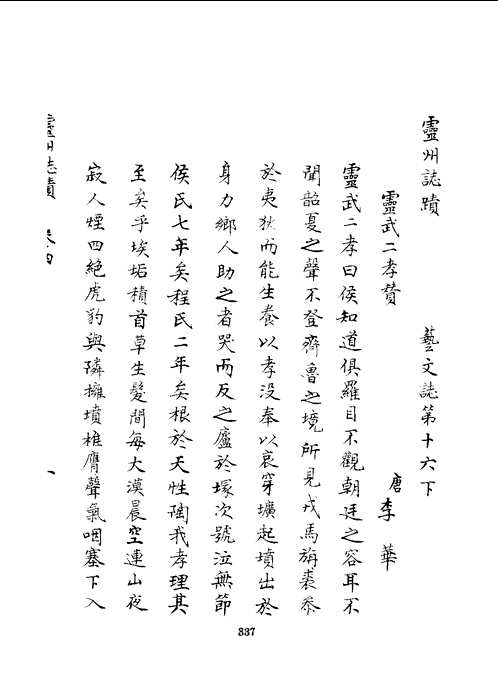 靈州誌蹟 藝文誌第十六下
靈武二孝贊 唐李華
靈武二孝曰侯知道俱羅目不觀朝廷之容耳不
聞韶夏之聲不登齊魯之境所見戎馬旃裘忝
於夷狄而能生養以孝沒奉以哀穿壙起墳出於
身力鄉人助之者哭而反之廬於塚次號泣無節
侯氏七年矣程氏二年矣根於天性陶我孝理其
至矣乎埃垢積首草生髮間每大漠晨空連山夜
寂人煙四絕虎豹與隣擁墳椎膺聲氣咽塞下入
靈州誌蹟 卷四 一
337